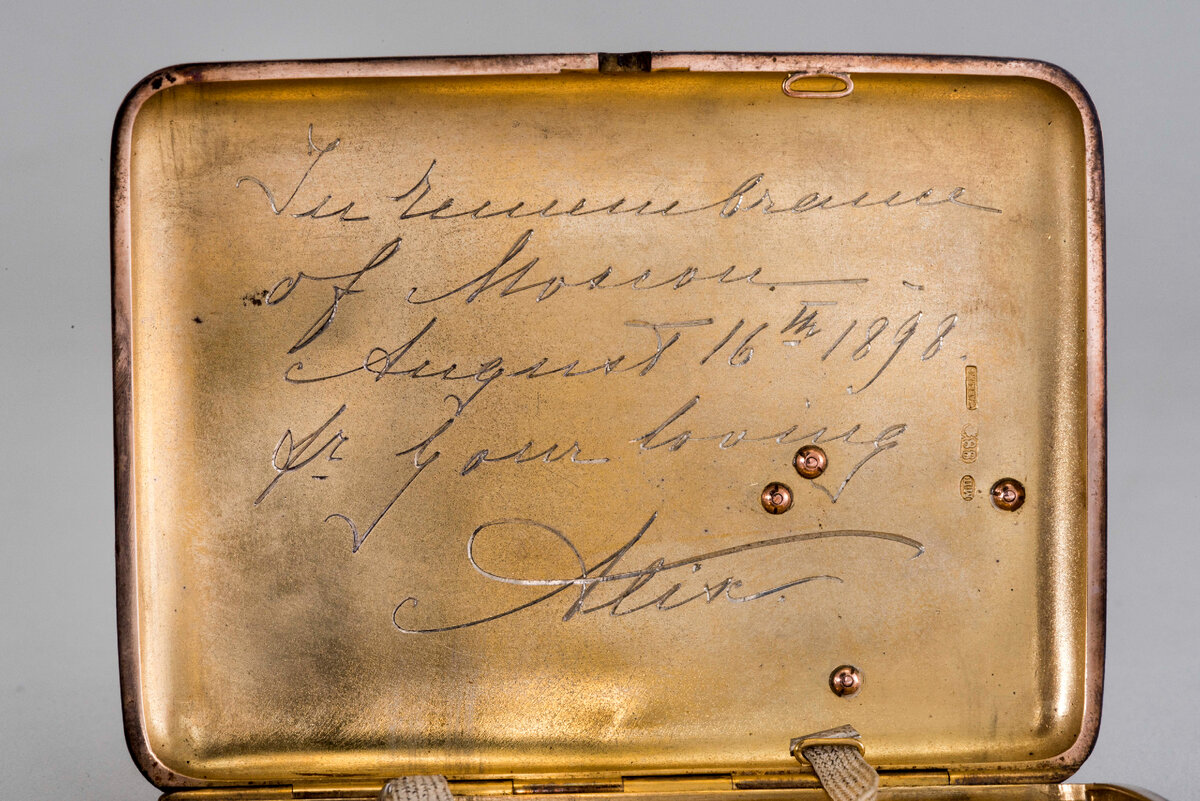 In remembrance
of Moscou
August 16th 1898.
fr. your loving
Alix.